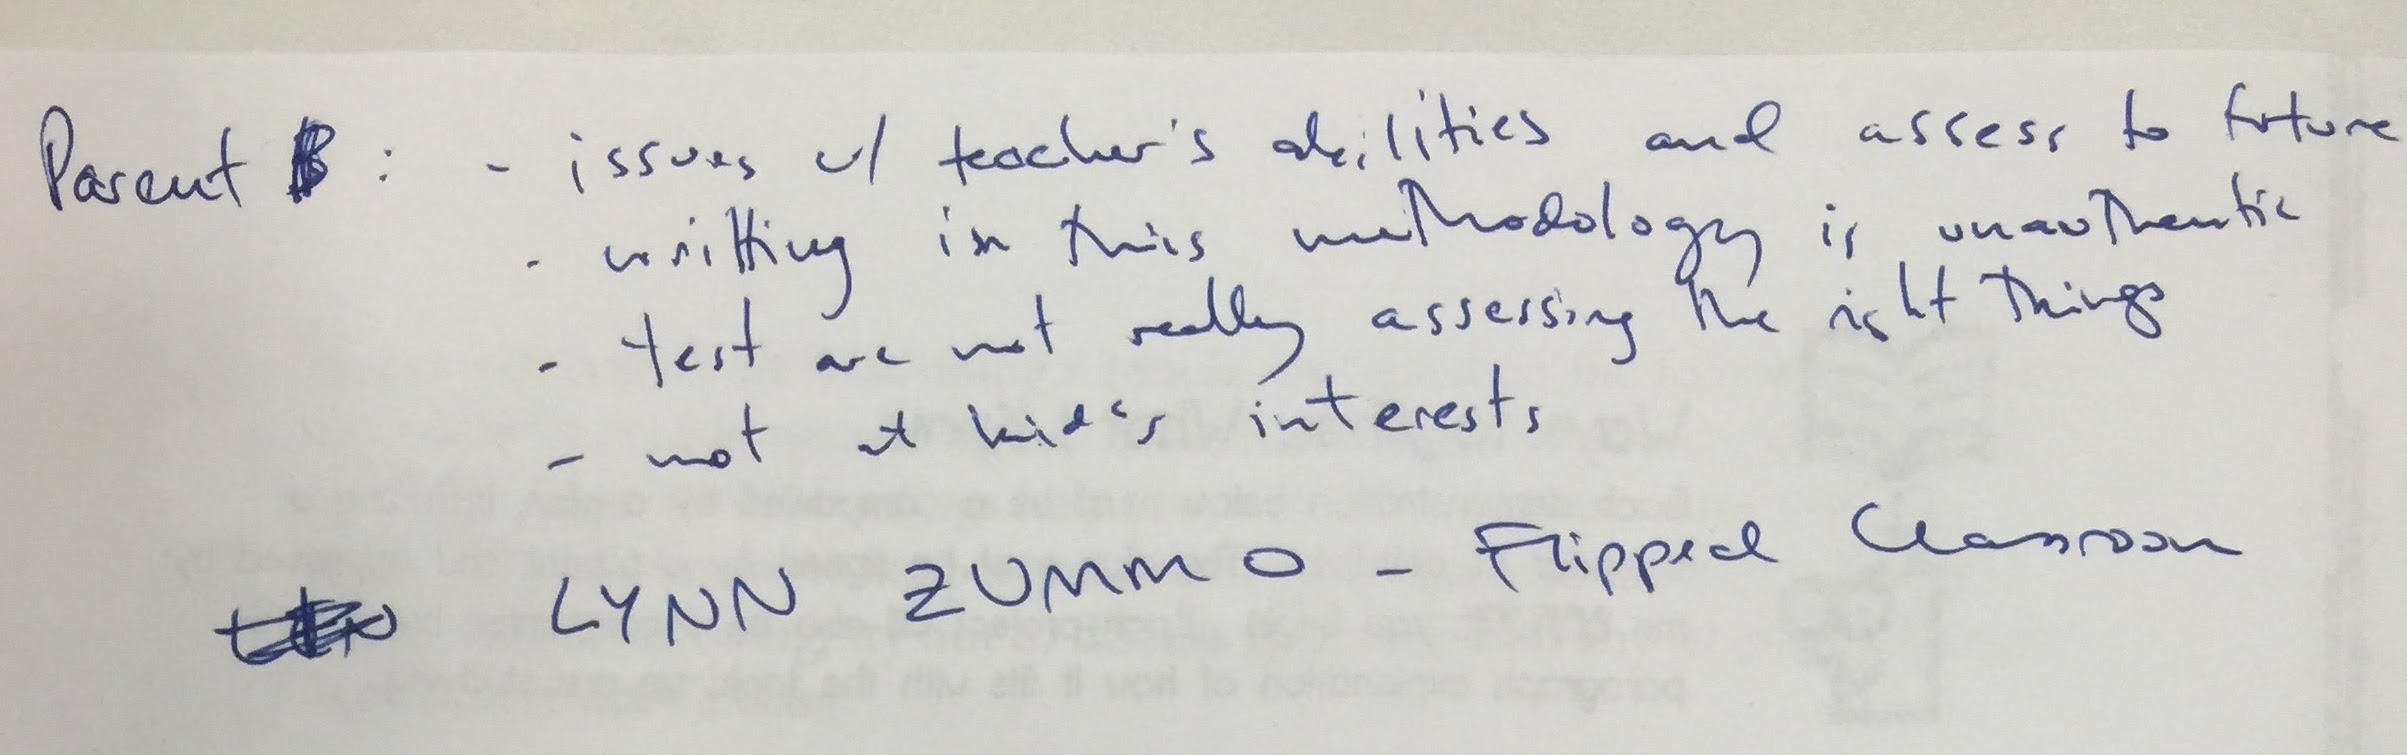 Parent B : - issues w/ teacher's abilities and assess to future
- writting in this methodology is unauthentic
- test are not really assessing the right things
- not at kid's interests
LYNN ZUMMO - Flipped Classroom